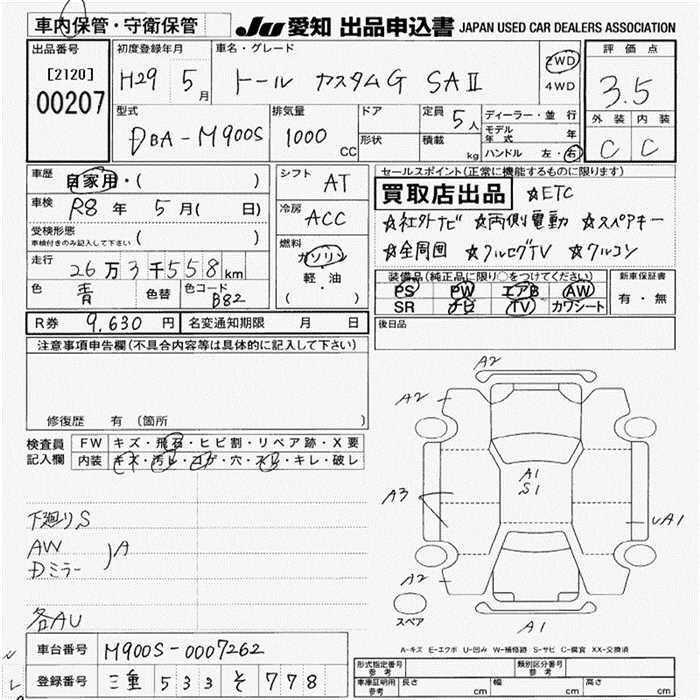 車内保管・守衛保管
JU 愛知 出品申込書 JAPAN USED CAR DEALERS ASSOCIATION
出品番号
[2120]
00207
初度登録年月
H29 5月
車名・グレード
トール カスタムG SAⅡ
2WD
4WD
評価点
3.5
外装 内装
C C
型式
DBA-M900S
排気量
1000 CC
ドア
形状
定員 5人
積載 kg
ディーラー・並行
モデル年式 年
ハンドル 左・右
車歴
自家用・( )
車検 R8年 5月( 日)
受検形態
車検付きのみ記入して下さい ( )
走行 26万3千558km
色 青 色替 色コード B82
シフト AT
冷房 ACC
燃料
ガソリン
軽・油
( )
セールスポイント(正常に機能するものに限ります)
買取店出品 ☆ETC
☆社外ナビ ☆両側電動 ☆スペアキー
☆全周囲 ☆フルセグTV ☆クルコン
装備品(純正品に限り○をつけてください)
PS PW エアB AW
SR ナビ TV カワシート
新車保証書
有・無
R券 9,630円 名変通知期限 月 日
後日品
注意事項申告欄(不具合内容等は具体的に記入して下さい)
修復歴 有 (箇所 )
検査員記入欄
FW キズ・飛石・ヒビ割・リペア跡・X要
内装 キズ・汚れ・コゲ・穴・スレ・キレ・破レ
下廻りS
AW
Dミラー
)A
各AU
A2
A2
A1
S1
A3
UA1
A2
A1
スペア
A-キズ E-エクボ U-凹み W-補修跡 S-サビ C-腐食 XX-交換済
車台番号 M900S-0007262
登録番号 三重 533 そ 778
形式指定番号 参考
類別区分番号 参考
車庫証明用 参考 長さ cm 幅 cm 高さ cm